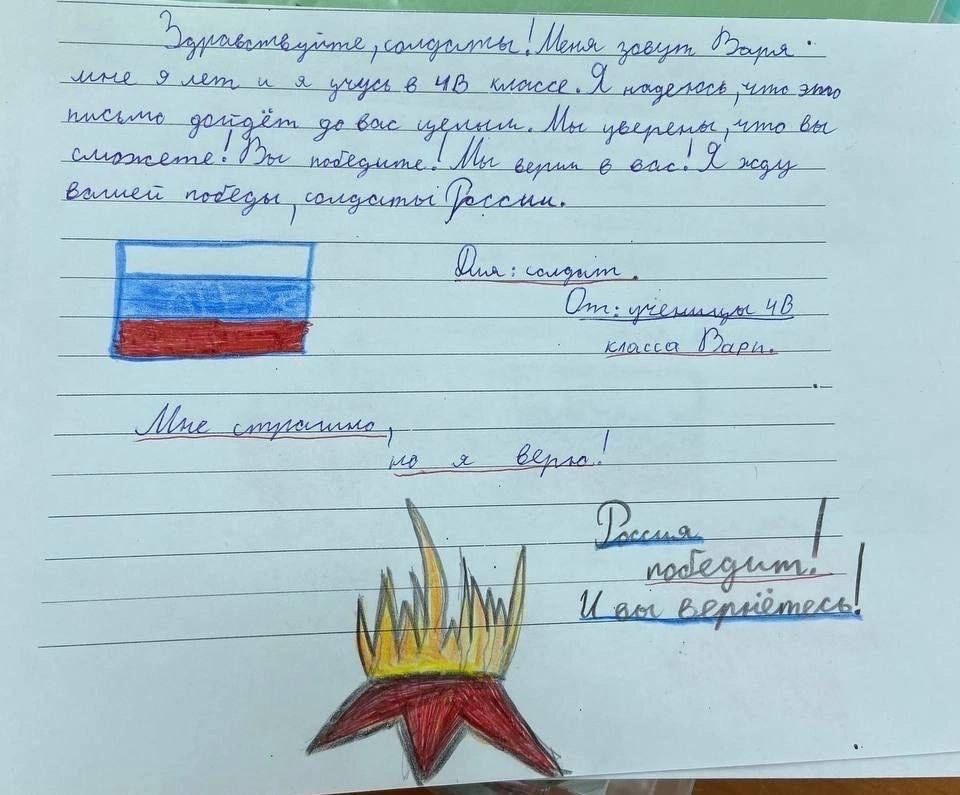 Здравствуйте, солдаты! Меня зовут Варя.
мне 9 лет и я учусь в 4В классе. Я надеюсь, что это
письмо дойдёт до вас целым. Мы уверены, что вы
сможете! Вы победите! Мы верим в вас! Я жду
вашей победы, солдаты России.
Для: солдат.
От: ученицы 4В
класса Вари.
Мне страшно,
но я верю!
Россия
победит!
И вы вернётесь!